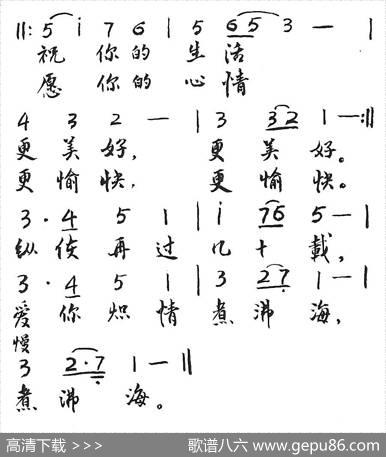 ||: 5 i 7 6 | 5 6 5 3 — |
祝 你的 生活
愿 你的 心情
4 3 2 — | 3 3 2 1 — :||
更 美 好, 更 美 好。
更 愉 快, 更 愉 快。
3 · 4 5 1 | i 7 6 5 — |
纵 使 再 过 几 十 载,
3 · 4 5 1 | 3 2 7 1 — |
爱 你 炽 情 煮 沸 海,
慢
3 2 · 7 1 — ||
煮 沸 海。
高清下载 >>> 歌谱八六 www.gepu86.com